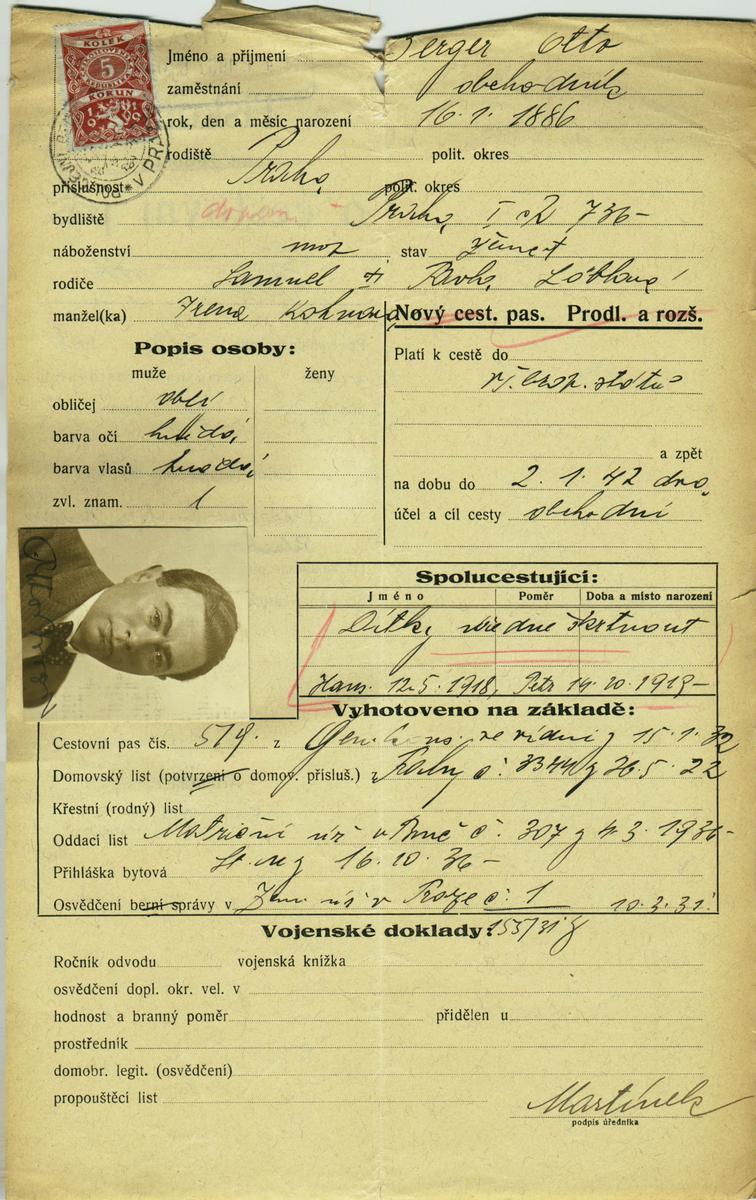 KOLEK
5
KORUN
Jméno a příjmení Berger Otto
zaměstnání obchodník
rok, den a měsíc narození 16. 1. 1886
rodiště Praha polit. okres
příslušnost polit. okres
bydliště doplem Praha, I č 736-
náboženství moz stav ženat
rodiče Samuel + Löblová
manžel(ka) Irena Kohnová
Nový cest. pas. Prodl. a rozš.
Popis osoby:
muže ženy
obličej obli
barva očí hnědá,
barva vlasů hnědá,
zvl. znam. 1
Platí k cestě do
všl. evrop. států
a zpět
na dobu do 2. 1. 42
účel a cíl cesty obchodní
Spolucestující:
Jméno Poměr Doba a místo narození
Dítky škrtnout
Hans. 12. 5. 1918, Petr 14. 10. 1919-
Vyhotoveno na základě:
Cestovní pas čís. 519. z Gen. kons. ve Vídni z 15. 1. 32
Domovský list (potvrzení o domov. přísluš.) z Prahy č. 3344 z 26. 5. 22
Křestní (rodný) list
Oddací list Matriční úř v Brně č. 307 z 4. 3. 1936-
Přihláška bytová 16. 10. 36-
Osvědčení berní správy v Praze č. 1 10. 3. 31.
Vojenské doklady:
Ročník odvodu vojenská knížka
osvědčení dopl. okr. vel. v
hodnost a branný poměr přidělen u
prostředník
domobr. legit. (osvědčení)
propouštěcí list
Martínek
podpis úředníka